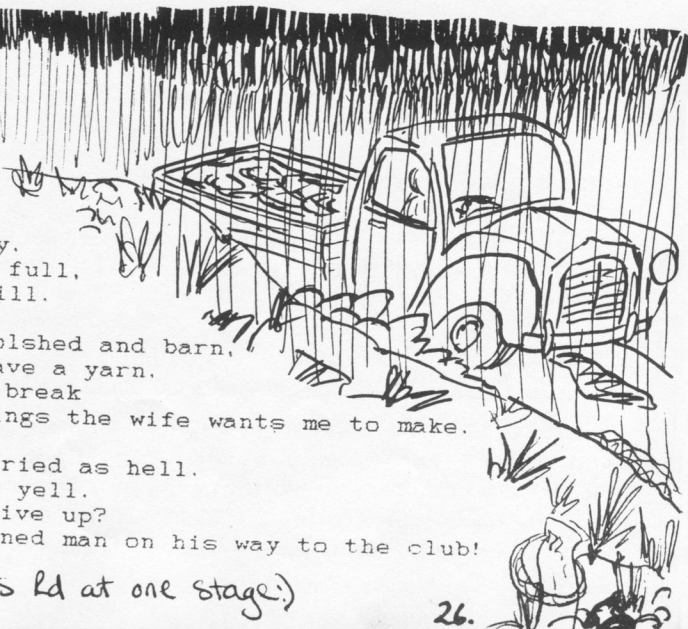 y.
full,
ill.
olshed and barn,
ave a yarn.
break
ngs the wife wants me to make.
ried as hell.
yell.
ive up?
ned man on his way to the club!
s Rd at one stage.)
26.